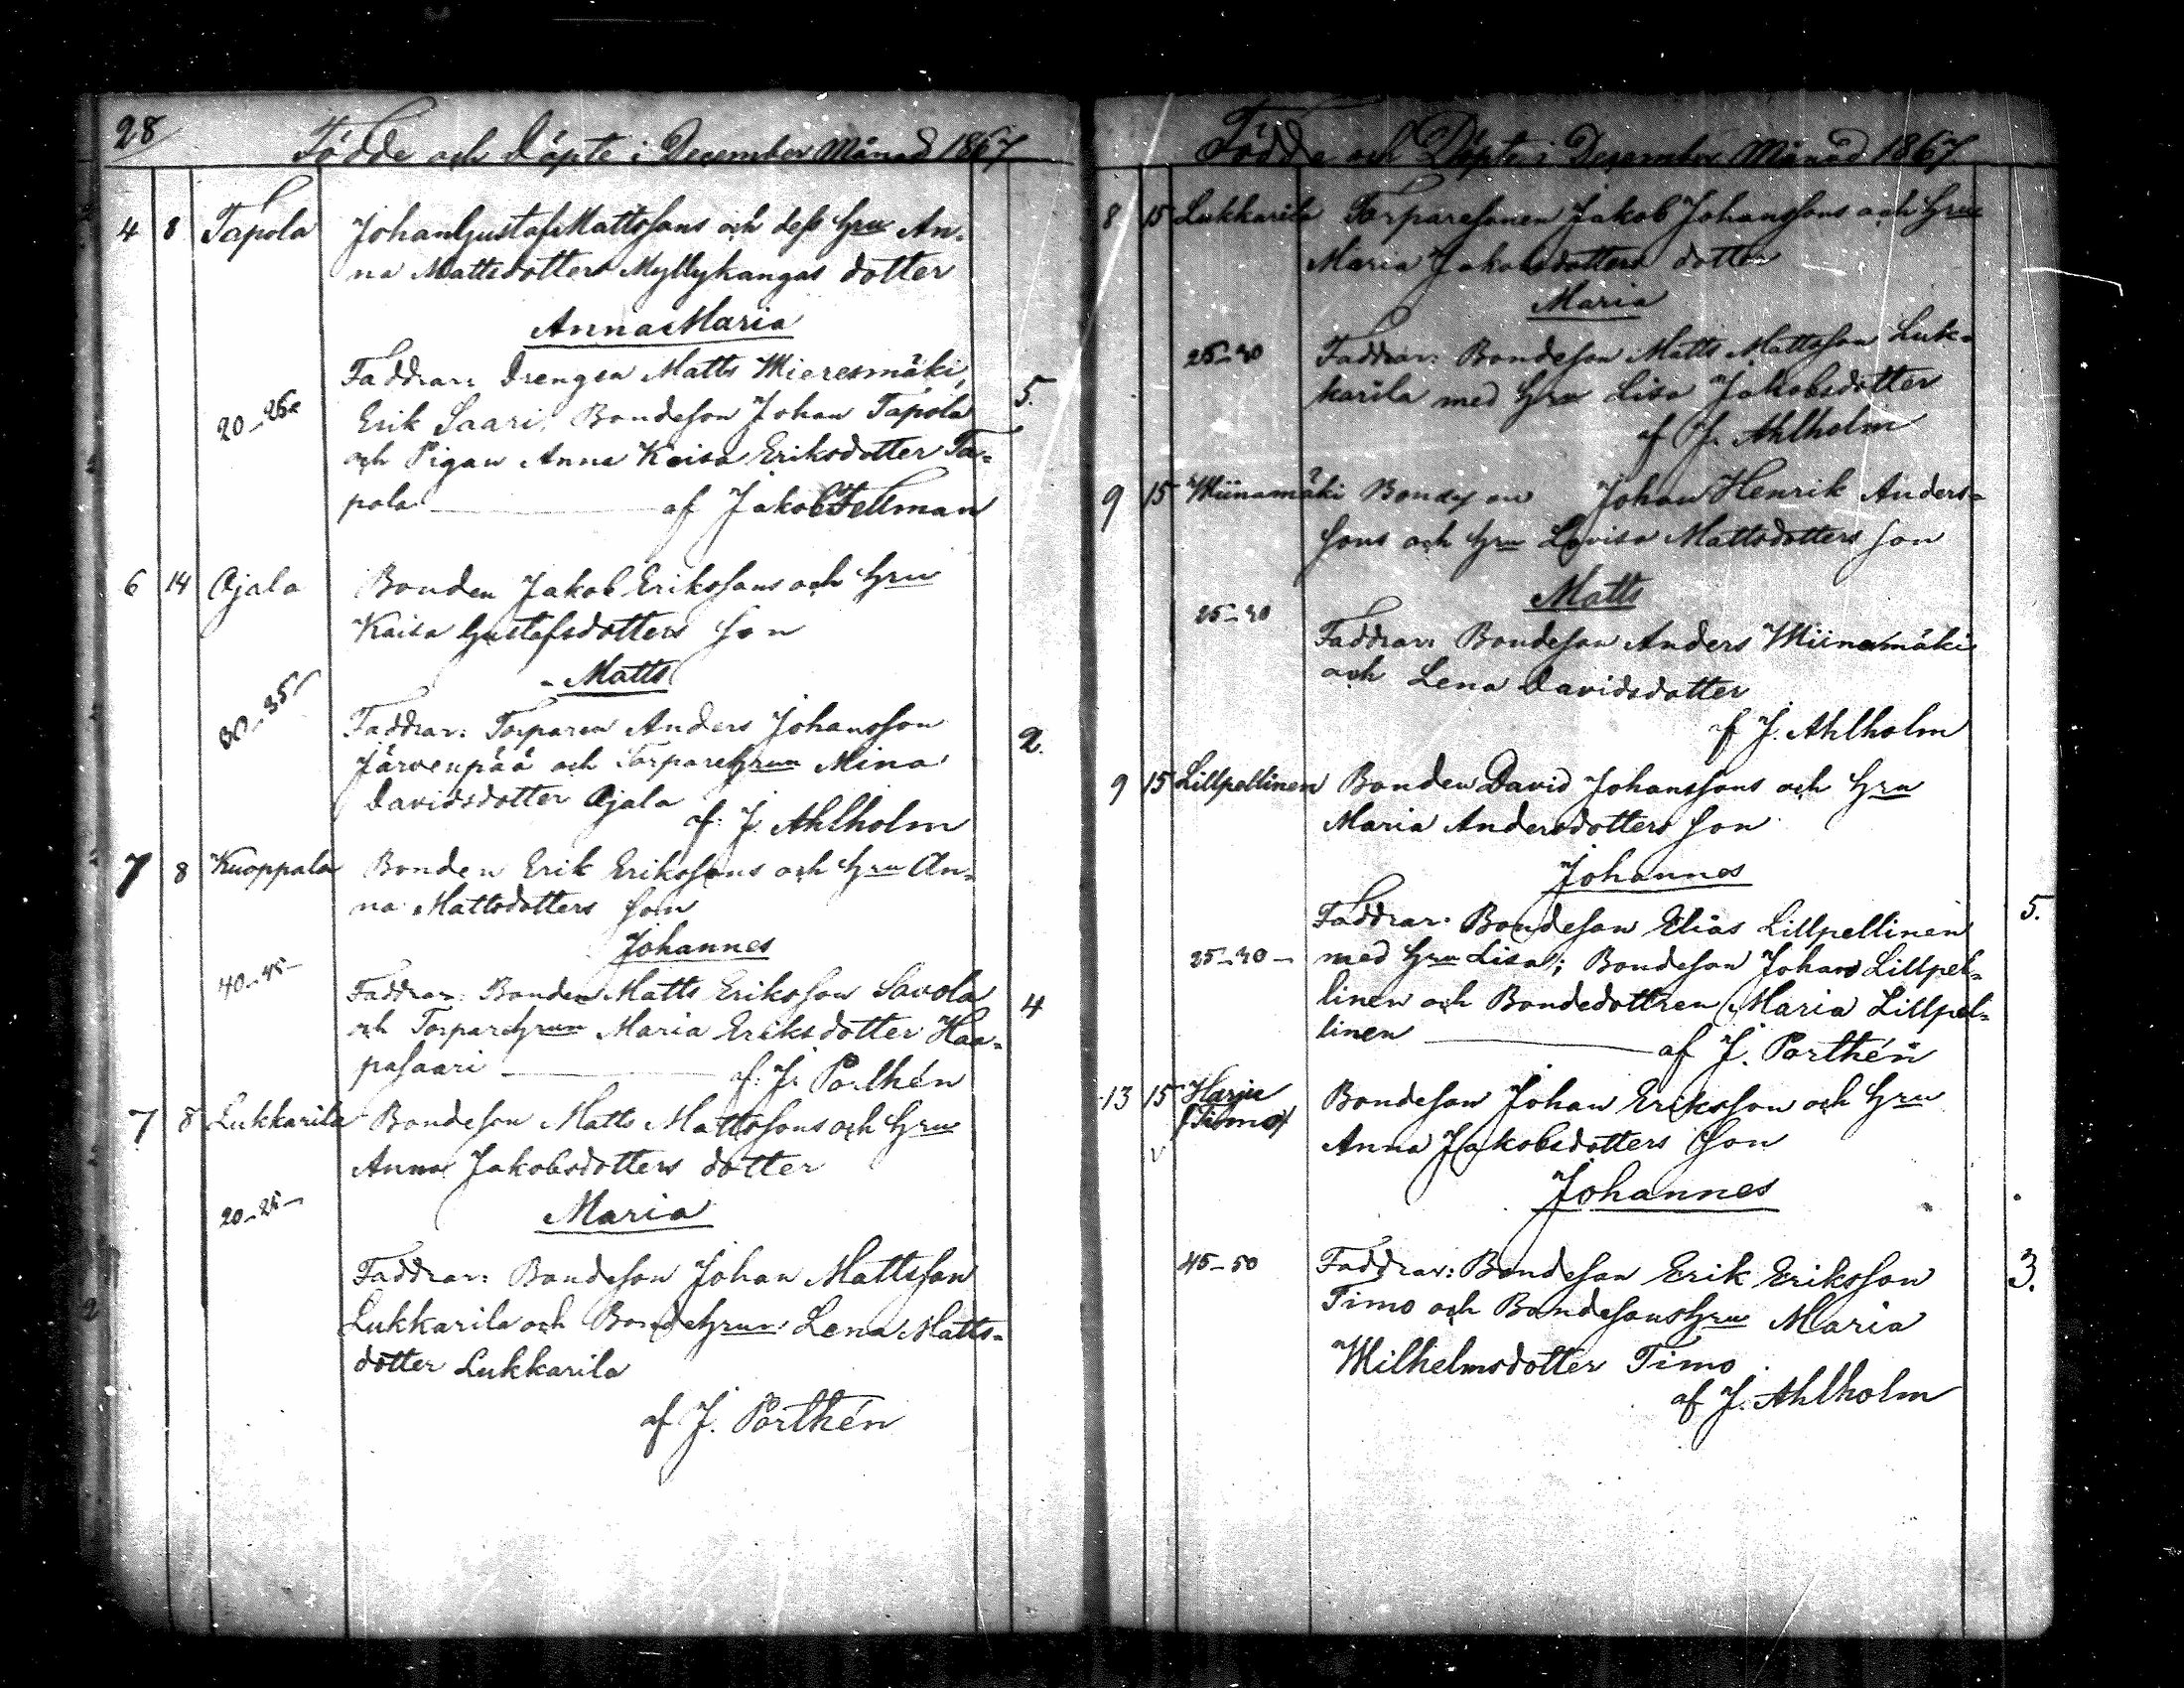 28
Födde och Döpte i December Månad 1867
4 8 Tapola Johan Gustaf Mattssons och dess Hru An-
na Mattsdotters Myllykangas dotter
Anna Maria
Faddrar: Drengen Matts Mieresmäki,
20-25 Erik Saari, Bondeson Johan Tapola 5.
och Pigan Anna Kaisa Eriksdotter Ta-
pola af Jakob Fellman
6 14 Ojala Bonden Jakob Erikssons och Hru
Kaisa Gustafsdotters son
Matts
30-35 Faddrar: Torparen Anders Johansson 2.
Järvenpää och Torpare Hrun Mina
Davidsdotter Ojala
af J. Ahlholm
7 8 Kuoppala Bonden Erik Erikssons och Hru An-
na Mattsdotters son
Johannes
40-45- Faddrar: Bonden Matts Eriksson Savola 4
och Torpare Hrun Maria Eriksdotter Haa-
pasaari af: J. Porthén
7 8 Lukkarila Bondeson Matts Mattssons och Hru
Anna Jakobsdotters dotter
20-25- Maria
Faddrar: Bondeson Johan Mattsson
Lukkarila och Bonde Hrun Lena Matts-
dotter Lukkarila
af J. Porthén
Födde och Döpte i December Månad 1867
8 15 Lukkarila Torparesonen Jakob Johanssons och Hru
Maria Jakobsdotters dotter
Maria
25-30 Faddrar: Bondeson Matts Mattsson Luk-
karila med Hru Lisa Jakobsdotter
af J. Ahlholm
9 15 Miinamäki Bondeson Johan Henrik Anders-
sons och Hru Lovisa Mattsdotters son
Matts
25-30 Faddrar: Bondeson Anders Miinamäki
och Lena Davidsdotter
af J. Ahlholm
9 15 Lillpellinen Bonden David Johanssons och Hru
Maria Andersdotters son
Johannes
Faddrar: Bondeson Elias Lillpellinen 5.
25-30- med Hru Lisa; Bondeson Johan Lillpel-
linen och Bondedottren Maria Lillpel-
linen af J. Porthén
13 15 Harju Bondeson Johan Eriksson och Hru
(Timo) Anna Jakobsdotters son
Johannes
45-50 Faddrar: Bondeson Erik Eriksson 3.
Timo och Bondesons Hru Maria
Wilhelmsdotter Timo
af J. Ahlholm